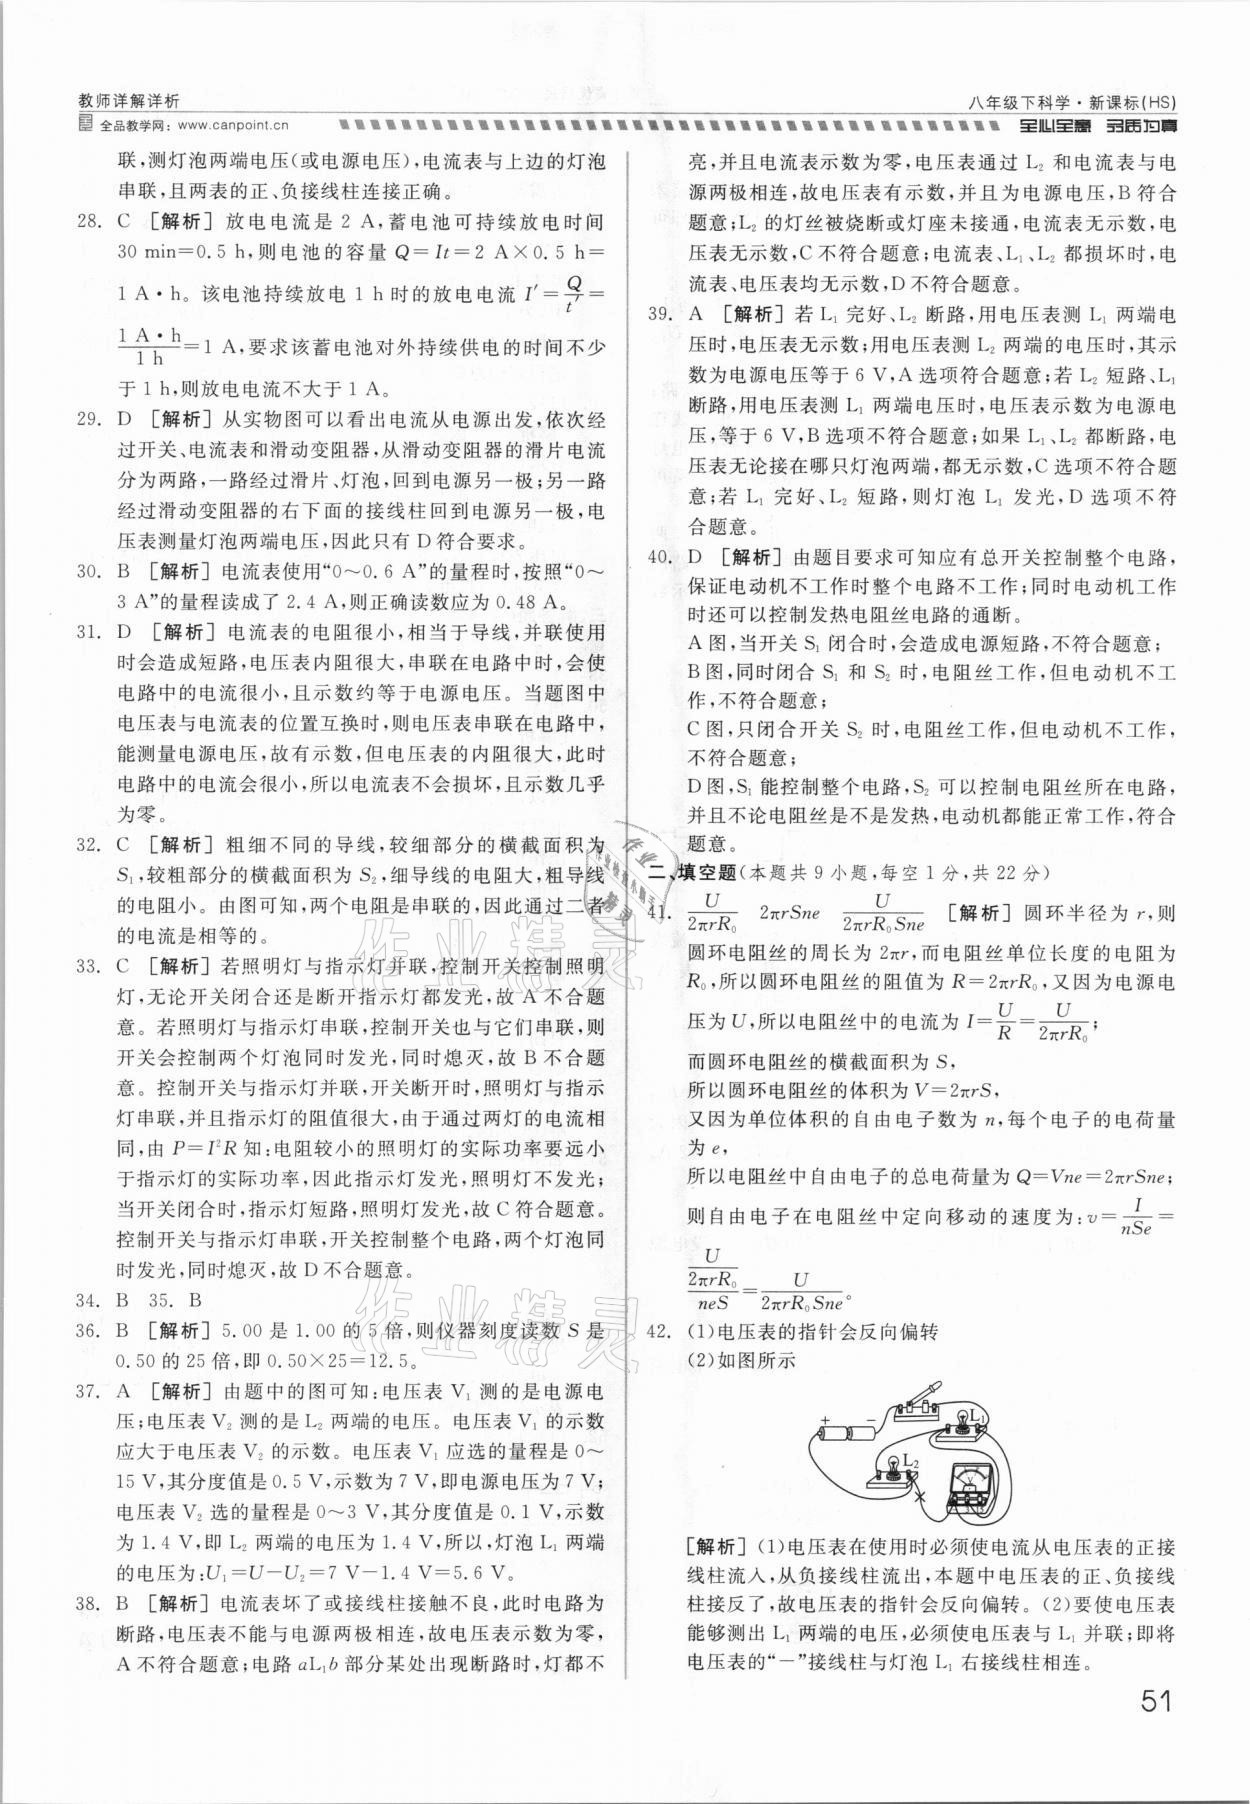 教师详解详析
八年级下科学·新课标(HS)
全品教学网：www.canpoint.cn
全心全意 品质为真
联,测灯泡两端电压(或电源电压),电流表与上边的灯泡
串联,且两表的正、负接线柱连接正确。
28. C [解析] 放电电流是 2 A,蓄电池可持续放电时间
30 min=0.5 h,则电池的容量 Q=It=2 A×0.5 h=
1 A·h。该电池持续放电 1 h 时的放电电流 I′=Q/t′=
1 A·h/1 h=1 A,要求该蓄电池对外持续供电的时间不少
于 1 h,则放电电流不大于 1 A。
29. D [解析] 从实物图可以看出电流从电源出发,依次经
过开关、电流表和滑动变阻器,从滑动变阻器的滑片电流
分为两路,一路经过滑片、灯泡,回到电源另一极;另一路
经过滑动变阻器的右下面的接线柱回到电源另一极,电
压表测量灯泡两端电压,因此只有 D 符合要求。
30. B [解析] 电流表使用“0～0.6 A”的量程时,按照“0～
3 A”的量程读成了 2.4 A,则正确读数应为 0.48 A。
31. D [解析] 电流表的电阻很小,相当于导线,并联使用
时会造成短路,电压表内阻很大,串联在电路中时,会使
电路中的电流很小,且示数约等于电源电压。当题图中
电压表与电流表的位置互换时,则电压表串联在电路中,
能测量电源电压,故有示数,但电压表的内阻很大,此时
电路中的电流会很小,所以电流表不会损坏,且示数几乎
为零。
32. C [解析] 粗细不同的导线,较细部分的横截面积为
S₁,较粗部分的横截面积为 S₂,细导线的电阻大,粗导线
的电阻小。由图可知,两个电阻是串联的,因此通过二者
的电流是相等的。
33. C [解析] 若照明灯与指示灯并联,控制开关控制照明
灯,无论开关闭合还是断开指示灯都发光,故 A 不合题
意。若照明灯与指示灯串联,控制开关也与它们串联,则
开关会控制两个灯泡同时发光,同时熄灭,故 B 不合题
意。控制开关与指示灯并联,开关断开时,照明灯与指示
灯串联,并且指示灯的阻值很大,由于通过两灯的电流相
同,由 P=I²R 知:电阻较小的照明灯的实际功率要远小
于指示灯的实际功率,因此指示灯发光,照明灯不发光;
当开关闭合时,指示灯短路,照明灯发光,故 C 符合题意。
控制开关与指示灯串联,开关控制整个电路,两个灯泡同
时发光,同时熄灭,故 D 不合题意。
34. B 35. B
36. B [解析] 5.00 是 1.00 的 5 倍,则仪器刻度读数 S 是
0.50 的 25 倍,即 0.50×25=12.5。
37. A [解析] 由题中的图可知:电压表 V₁ 测的是电源电
压;电压表 V₂ 测的是 L₂ 两端的电压。电压表 V₁ 的示数
应大于电压表 V₂ 的示数。电压表 V₁ 应选的量程是 0～
15 V,其分度值是 0.5 V,示数为 7 V,即电源电压为 7 V;
电压表 V₂ 选的量程是 0～3 V,其分度值是 0.1 V,示数
为 1.4 V,即 L₂ 两端的电压为 1.4 V,所以,灯泡 L₁ 两端
的电压为:U₁=U－U₂=7 V－1.4 V=5.6 V。
38. B [解析] 电流表坏了或接线柱接触不良,此时电路为
断路,电压表不能与电源两极相连,故电压表示数为零,
A 不符合题意;电路 aL₁b 部分某处出现断路时,灯都不
亮,并且电流表示数为零,电压表通过 L₂ 和电流表与电
源两极相连,故电压表有示数,并且为电源电压,B 符合
题意;L₂ 的灯丝被烧断或灯座未接通,电流表无示数,电
压表无示数,C 不符合题意;电流表、L₁、L₂ 都损坏时,电
流表、电压表均无示数,D 不符合题意。
39. A [解析] 若 L₁ 完好、L₂ 断路,用电压表测 L₁ 两端电
压时,电压表无示数;用电压表测 L₂ 两端的电压时,其示
数为电源电压等于 6 V,A 选项符合题意;若 L₂ 短路、L₁
断路,用电压表测 L₁ 两端电压时,电压表示数为电源电
压,等于 6 V,B 选项不符合题意;如果 L₁、L₂ 都断路,电
压表无论接在哪只灯泡两端,都无示数,C 选项不符合题
意;若 L₁ 完好、L₂ 短路,则灯泡 L₁ 发光,D 选项不符
合题意。
40. D [解析] 由题目要求可知应有总开关控制整个电路,
保证电动机不工作时整个电路不工作;同时电动机工作
时还可以控制发热电阻丝电路的通断。
A 图,当开关 S₁ 闭合时,会造成电源短路,不符合题意;
B 图,同时闭合 S₁ 和 S₂ 时,电阻丝工作,但电动机不工
作,不符合题意;
C 图,只闭合开关 S₂ 时,电阻丝工作,但电动机不工作,
不符合题意;
D 图,S₁ 能控制整个电路,S₂ 可以控制电阻丝所在电路,
并且不论电阻丝是不是发热,电动机都能正常工作,符合
题意。
二、填空题(本题共 9 小题,每空 1 分,共 22 分)
41. U/2πrR₀ 2πrSne U/2πrR₀Sne [解析] 圆环半径为 r,则
圆环电阻丝的周长为 2πr,而电阻丝单位长度的电阻为
R₀,所以圆环电阻丝的阻值为 R=2πrR₀,又因为电源电
压为 U,所以电阻丝中的电流为 I=U/R=U/2πrR₀;
而圆环电阻丝的横截面积为 S,
所以圆环电阻丝的体积为 V=2πrS,
又因为单位体积的自由电子数为 n,每个电子的电荷量
为 e,
所以电阻丝中自由电子的总电荷量为 Q=Vne=2πrSne;
则自由电子在电阻丝中定向移动的速度为:v=I/nSe=
(U/2πrR₀)/neS=U/2πrR₀Sne。
42. (1)电压表的指针会反向偏转
(2)如图所示
+ − L₁
L₂
V
[解析] (1)电压表在使用时必须使电流从电压表的正接
线柱流入,从负接线柱流出,本题中电压表的正、负接线
柱接反了,故电压表的指针会反向偏转。(2)要使电压表
能够测出 L₁ 两端的电压,必须使电压表与 L₁ 并联;即将
电压表的“－”接线柱与灯泡 L₁ 右接线柱相连。
51
作业精灵
作业精灵